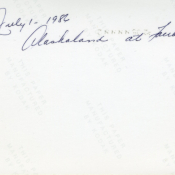 July 1 - 1986
Alaskaland at